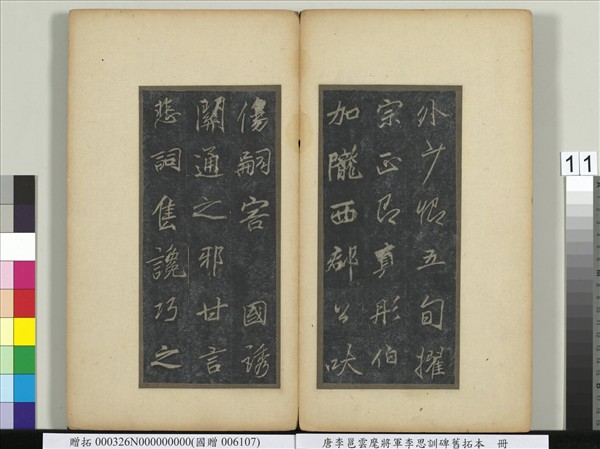 外少卿五旬擢
宗正即真彤伯
加隴西郡公吠
傷嗣害 國誘
關通之邪甘言
悲詞售讒巧之
11
贈拓 000326N000000000(國贈 006107)
唐李邕雲麾將軍李思訓碑舊拓本 冊